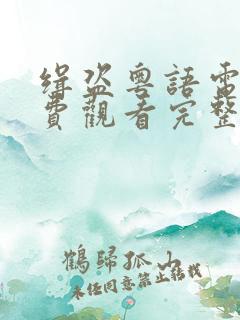 緝盜粵語電
費觀看完整
鶴歸孤山
未经同意禁止转载